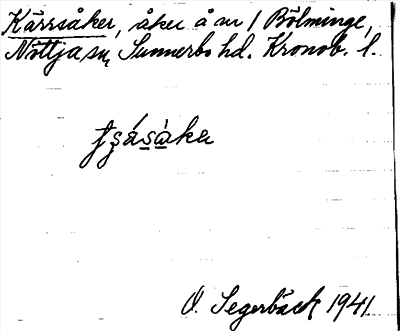 Kärrsåker, åker å nr 1 Bölminge,
Nöttja sn, Sunnerbo hd. Kronob. l.
O. Segerbäck 1941